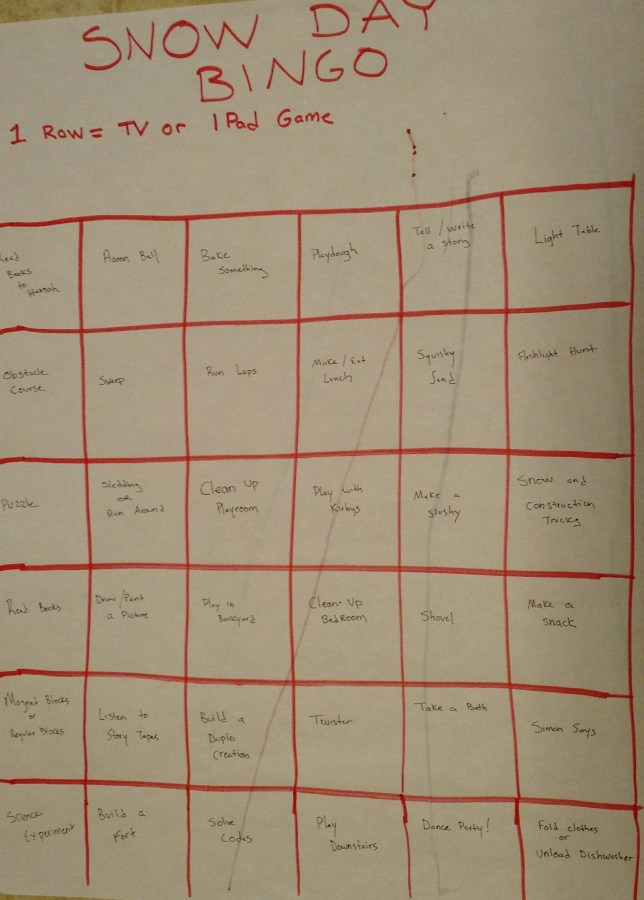 SNOW DAY
BINGO
1 Row = TV or IPad Game
Read
Books
to
Hannah
Ball
Bake
Something
Playdough
Tell / Write
a story
Light Table
Obstacle
Course
Sweep
Run Laps
Make / Eat
Lunch
Squishy
Sand
Flashlight Hunt
Puzzle
Sledding
or
Run Around
Clean Up
Playroom
Play with
Kirbys
Make a
slushy
Snow and
Construction
Trucks
Read Books
Draw / Paint
a Picture
Play in
Backyard
Clean-Up
BedRoom
Shovel
Make a
snack
Magnet Blocks
or
Regular Blocks
Listen to
Story Tapes
Build a
Duplo
Creation
Twister
Take a Bath
Simon Says
Science
Experiment
Build a
Fort
Solve
Codes
Play
Downstairs
Dance Party!
Fold clothes
or
Unload Dishwasher